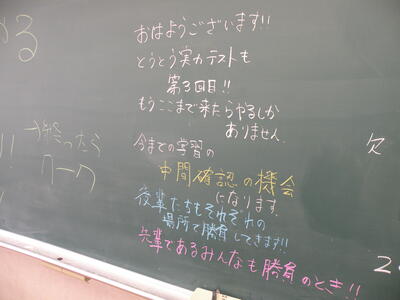 おはようございます!!
とうとう実力テストも
第3回目!!
もうここまで来たらやるしか
ありません。
今までの学習の
中間確認の機会
になります。
後輩たちもそれぞれの
場所で勝負してきます!!
先輩であるみんなも勝負のとき!!
終ったら
ワーク
欠